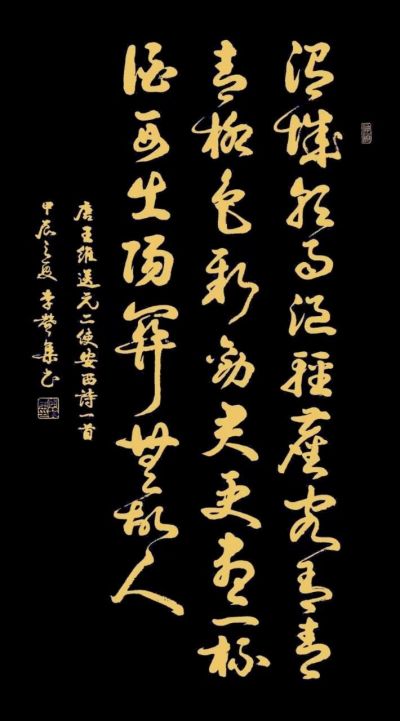 渭城朝雨浥輕塵客舍青
青柳色新勸君更盡一杯
酒西出陽關無故人
唐王維送元二使安西詩一首
甲辰之夏李集书